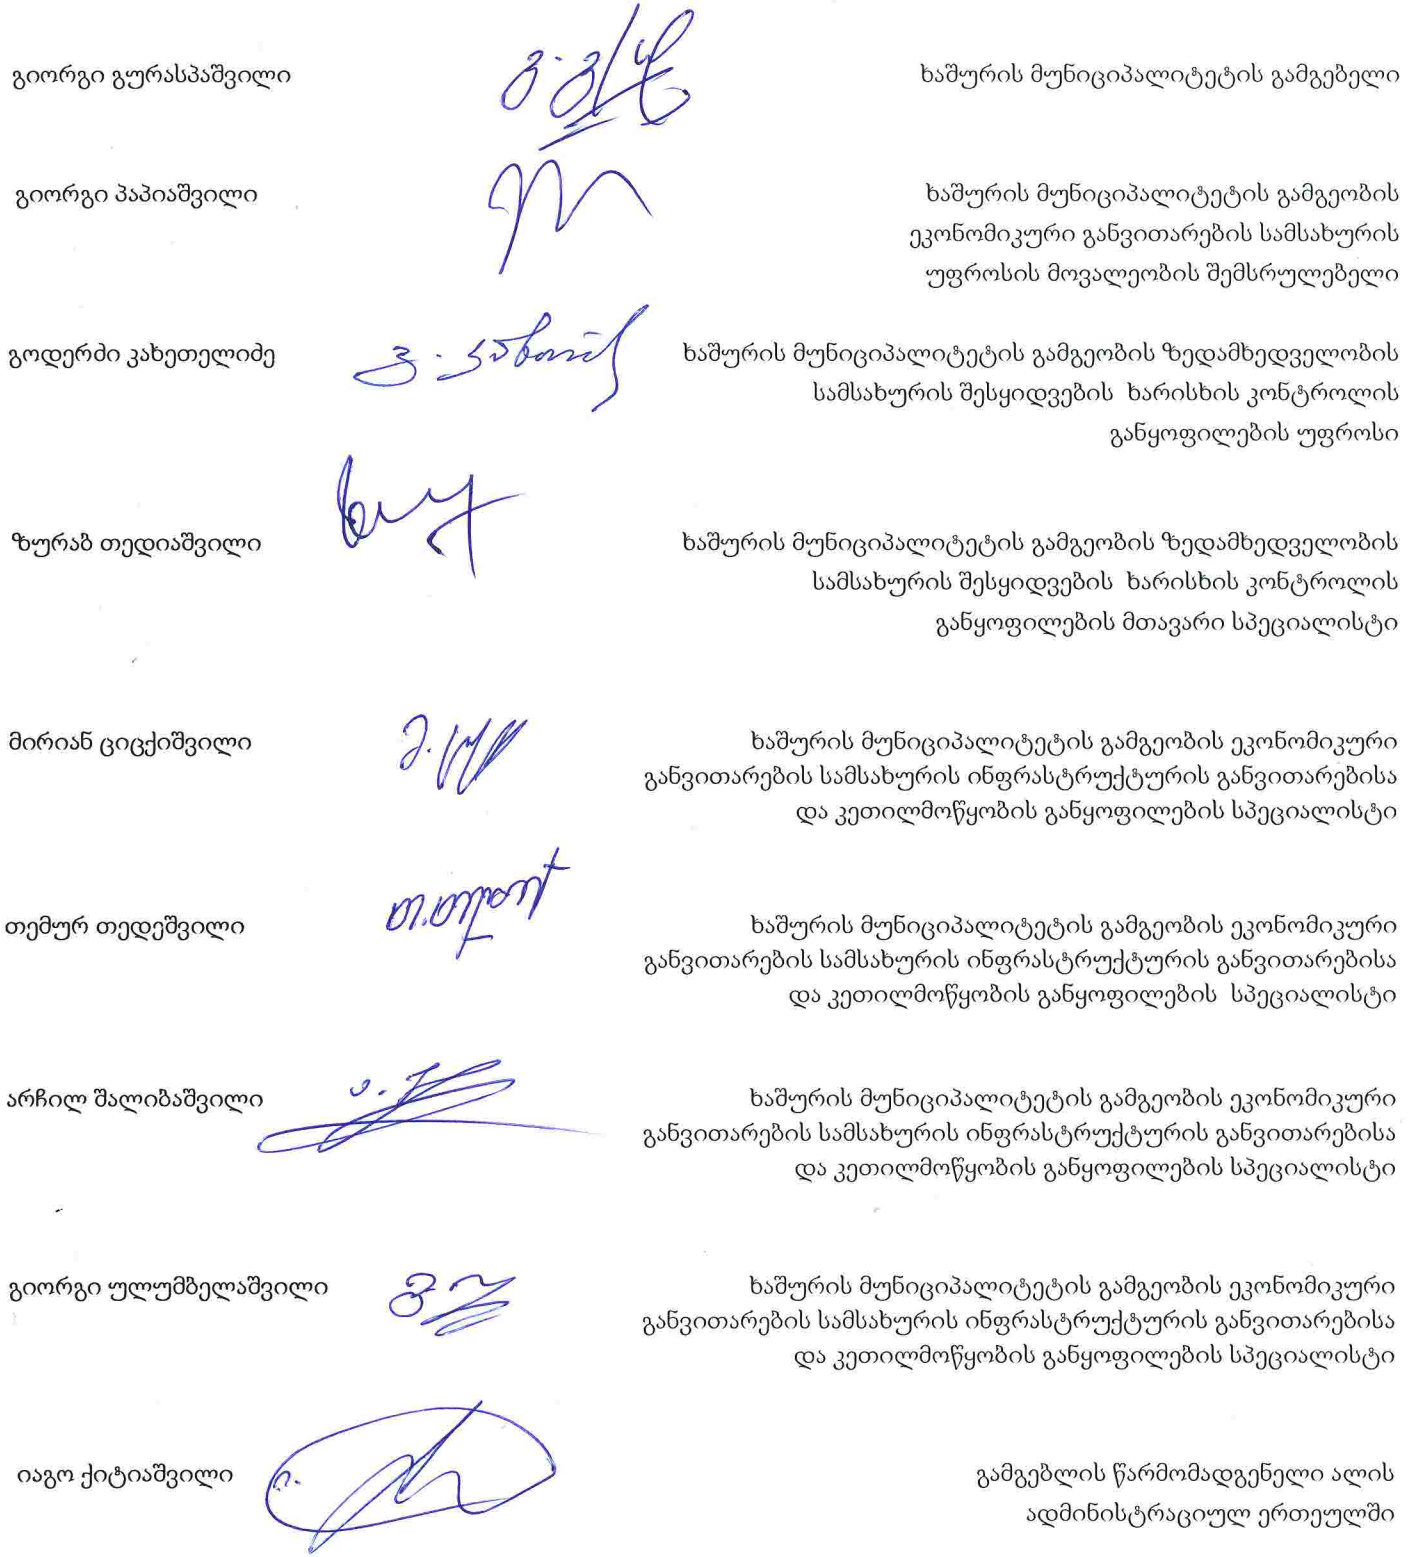 გიორგი გურასპაშვილი ხაშურის მუნიციპალიტეტის გამგებელი
გიორგი პაპიაშვილი ხაშურის მუნიციპალიტეტის გამგეობის
ეკონომიკური განვითარების სამსახურის
უფროსის მოვალეობის შემსრულებელი
გოდერძი კახეთელიძე ხაშურის მუნიციპალიტეტის გამგეობის ზედამხედველობის
სამსახურის შესყიდვების ხარისხის კონტროლის
განყოფილების უფროსი
ზურაბ თედიაშვილი ხაშურის მუნიციპალიტეტის გამგეობის ზედამხედველობის
სამსახურის შესყიდვების ხარისხის კონტროლის
განყოფილების მთავარი სპეციალისტი
მირიან ციცქიშვილი ხაშურის მუნიციპალიტეტის გამგეობის ეკონომიკური
განვითარების სამსახურის ინფრასტრუქტურის განვითარებისა
და კეთილმოწყობის განყოფილების სპეციალისტი
თემურ თედეშვილი ხაშურის მუნიციპალიტეტის გამგეობის ეკონომიკური
განვითარების სამსახურის ინფრასტრუქტურის განვითარებისა
და კეთილმოწყობის განყოფილების სპეციალისტი
არჩილ შალიბაშვილი ხაშურის მუნიციპალიტეტის გამგეობის ეკონომიკური
განვითარების სამსახურის ინფრასტრუქტურის განვითარებისა
და კეთილმოწყობის განყოფილების სპეციალისტი
გიორგი ულუმბელაშვილი ხაშურის მუნიციპალიტეტის გამგეობის ეკონომიკური
განვითარების სამსახურის ინფრასტრუქტურის განვითარებისა
და კეთილმოწყობის განყოფილების სპეციალისტი
იაგო ქიტიაშვილი გამგებლის წარმომადგენელი ალის
ადმინისტრაციულ ერთეულში